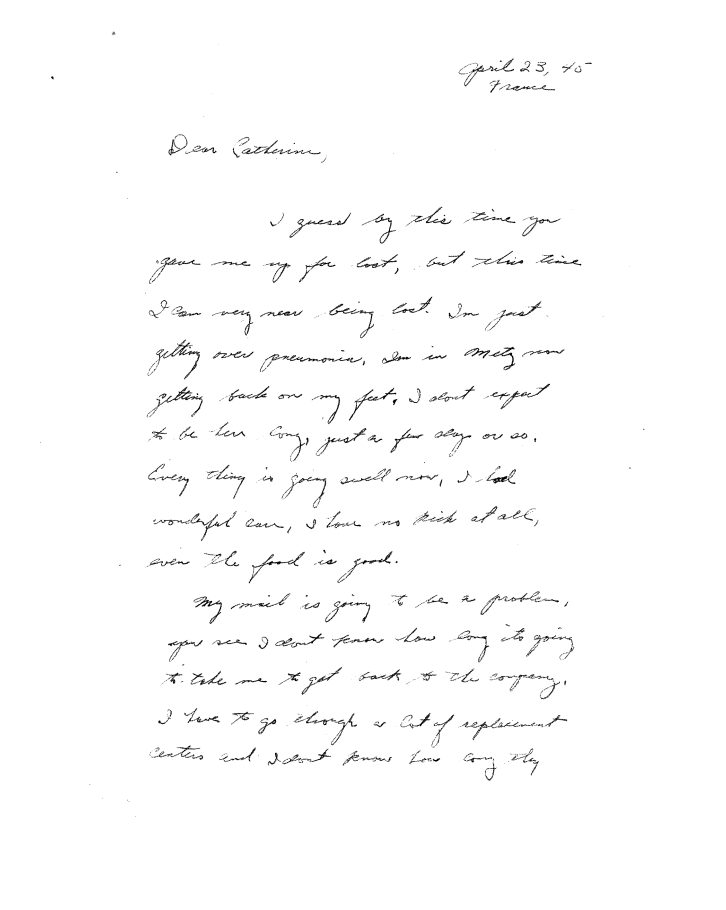 April 23, 45
France
Dear Catherine,
I guess by this time you
gave me up for lost, but this time
I can very near being lost. Im just
getting over pneumonia, Im in Metz now
getting back on my feet, I dont expect
to be here long, just a few days or so.
Every thing is going swell now, I had
wonderful care, I have no kick at all,
even the food is good.
My mail is going to be a problem,
you see I dont know how long its going
to take me to get back to the company.
I have to go through a lot of replacement
centers and I dont know how long they